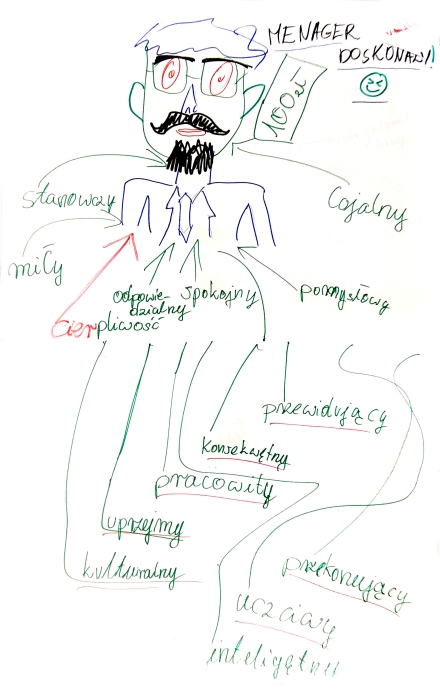 MENAGER
DOSKONAŁY!
100zł
stanowczy
Lojalny
miły
odpowie-
dzialny
spokojny
pomysłowy
Cierpliwość
przewidujący
konsekwętny
pracowity
uprzejmy
kulturalny
przekonujący
uczciwy
inteligętny